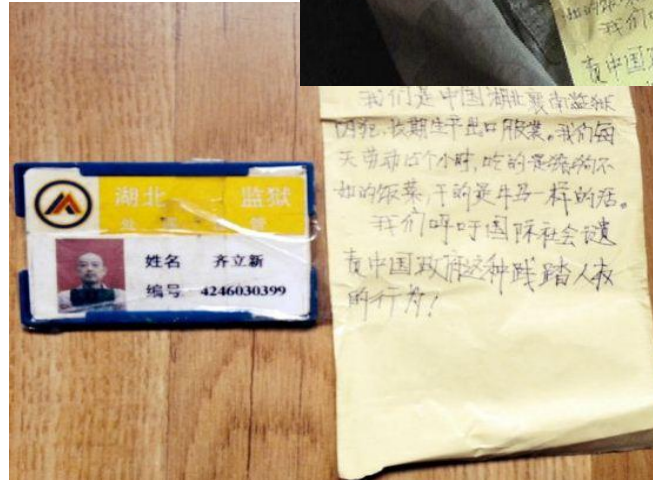 如的饭菜
我们
责中国政
湖北 监狱
姓名 齐立新
编号 4246030399
我们是中国湖北襄南监狱
囚犯,长期生产出口服装。我们每
天劳动15个小时,吃的是猪狗不
如的饭菜,干的是牛马一样的活。
我们呼吁国际社会谴
责中国政府这种践踏人权
的行为!